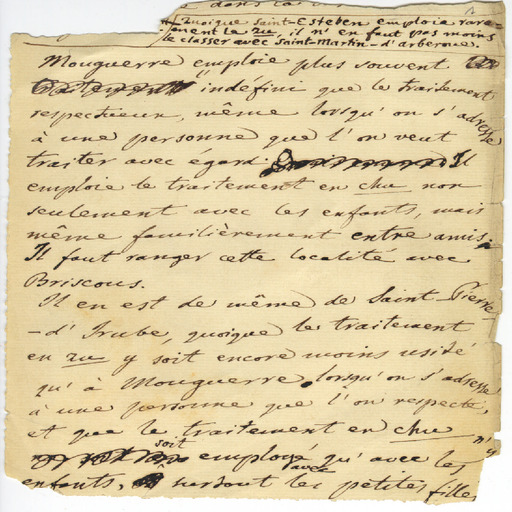 dans la
Quoique Saint-Esteben emploie rare-
ment le zu, il n'en faut pas moins
le classer avec Saint-Martin-d'arberoue.
Mouguerre emploie plus souvent le
indéfini que le traitement
respectueux, même lorsqu'on s'adresse
à une personne que l'on veut
traiter avec égard. Il
emploie le traitement en chu non
seulement avec les enfants, mais
même familièrement entre amis.
Il faut ranger cette localité avec
Briscous.
Il en est de même de Saint-Pierre
-d'Irube, quoique le traitement
en zu y soit encore moins usité
qu'à Mouguerre lorsqu'on s'adresse
à une personne que l'on respecte,
et que le traitement en chu n'y
soit employé qu'avec les
enfants, surtout avec les petites filles